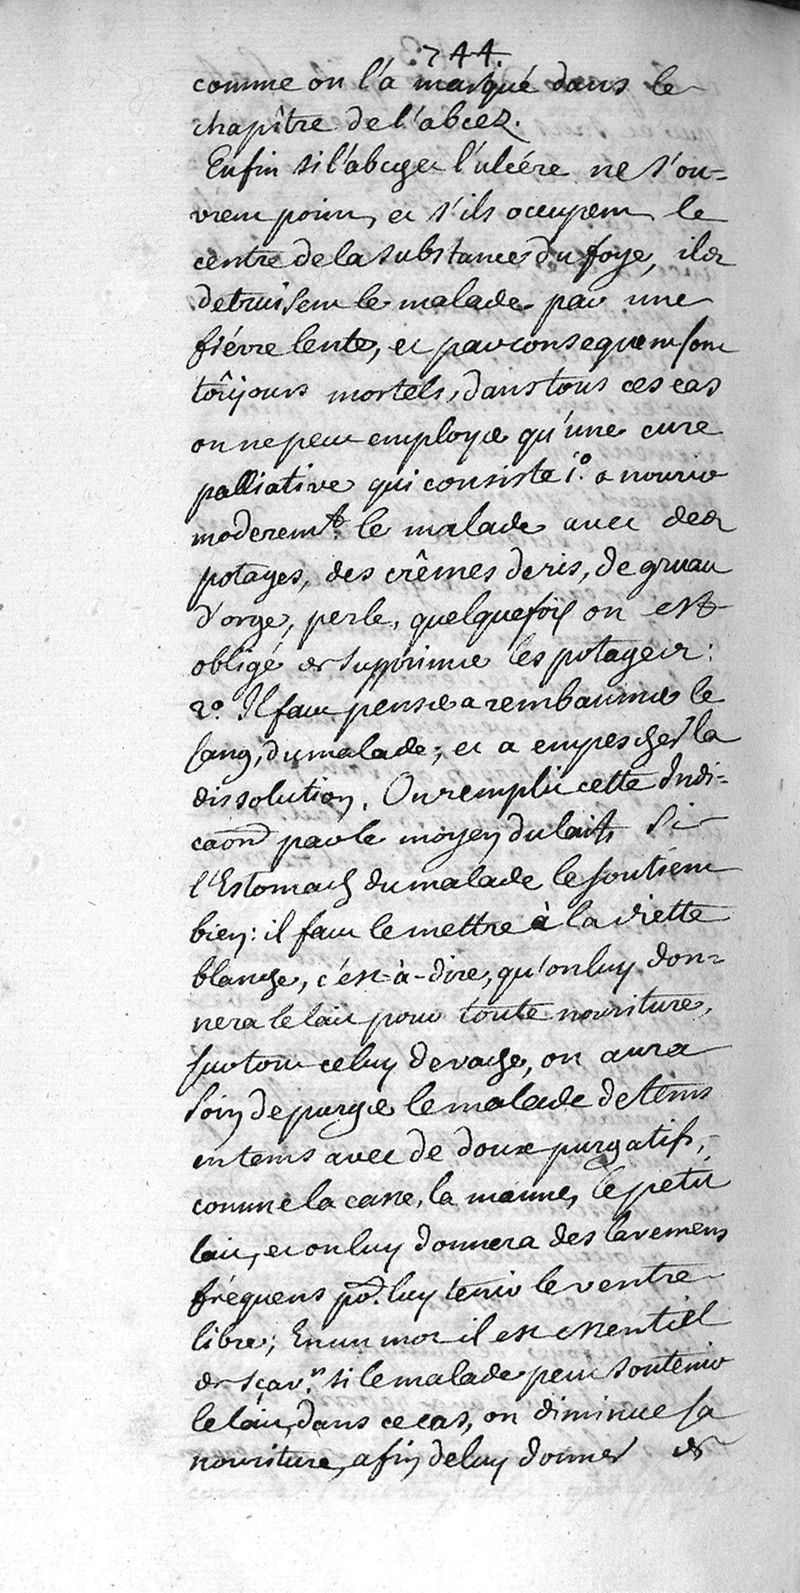 744.
comme on l'a marqué dans le
chapître de l'abcez.
Enfin si l'abcez et l'ulcére ne s'ou=
vrent point, et s'ils occupent le
centre de la substance du foye, ils
detruisent le malade par une
fiévre lente, et par consequent sont
toûjours mortels, dans tous ces cas
on ne peut employer qu'une cure
palliative qui consiste 1.º a nourir
moderemt. le malade avec des
potages, des crêmes de ris, de gruau
d'orge, perle, quelquefois on est
obligé de supprimer les potages:
2.º Il faut penser a rembaumer le
sang, du malade; et a empescher la
dissolution. On remplit cette Indi=
caon par le moyen du lait, Si
l'Estomach du malade le soutient
bien: il faut le mettre à la diette
blanche, c'est-à-dire, qu'on luy don=
nera le lait pour toute nourriture,
surtout celuy de vache, on aura
soin de purger le malade de tems
en tems avec de doux purgatifs,
comme la casse, la manne, le petit
lait, et on luy donnera des lavemens
fréquens pr. luy tenir le ventre
libre; En un mot il est essentiel
de sçavr. si le malade peut soutenir
le lait, dans ce cas, on diminue sa
nourriture, afin de luy donner de